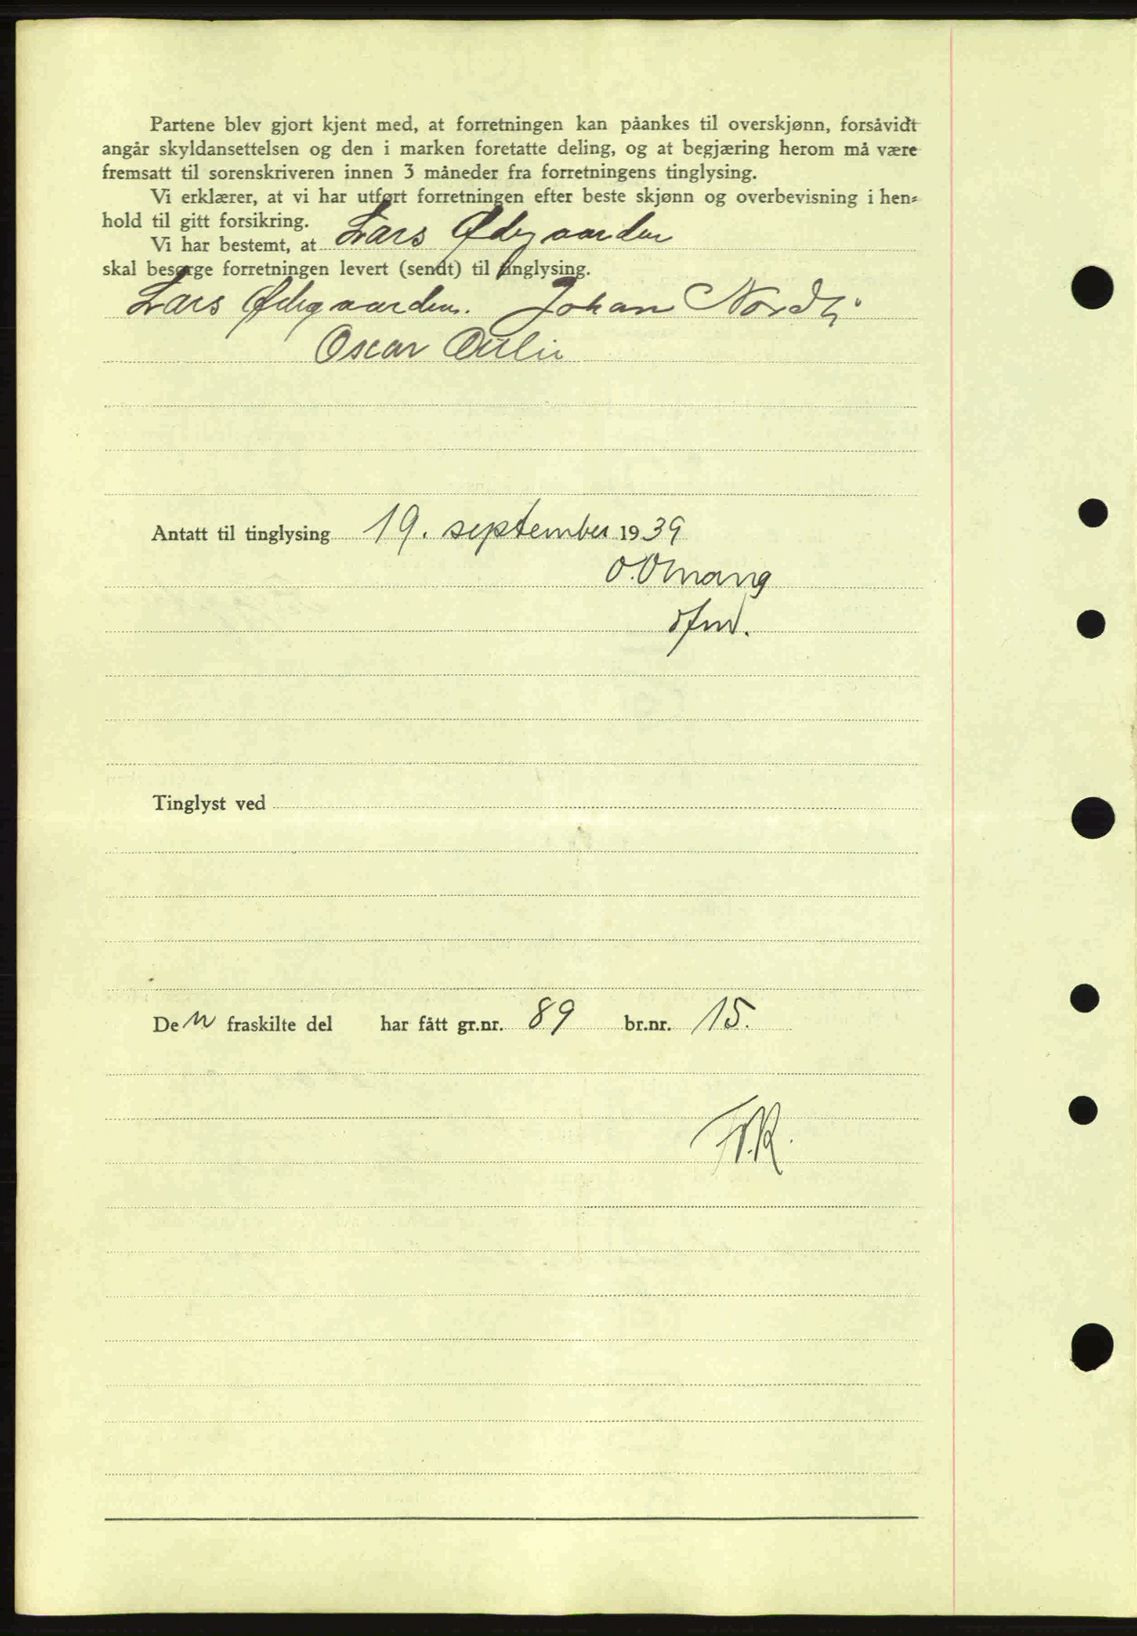 Partene blev gjort kjent med, at forretningen kan påankes til overskjønn, forsåvidt
angår skyldansettelsen og den i marken foretatte deling, og at begjæring herom må være
fremsatt til sorenskriveren innen 3 måneder fra forretningens tinglysing.
Vi erklærer, at vi har utført forretningen efter beste skjønn og overbevisning i hen-
hold til gitt forsikring.
Vi har bestemt, at Lars Ødegaarden
skal besørge forretningen levert (sendt) til tinglysing.
Lars Ødegaarden. Johan Nordli
Oscar
Antatt til tinglysing 19. september 1939
O. Omang
Tinglyst ved
Den fraskilte del har fått gr.nr. 89 br.nr. 15.